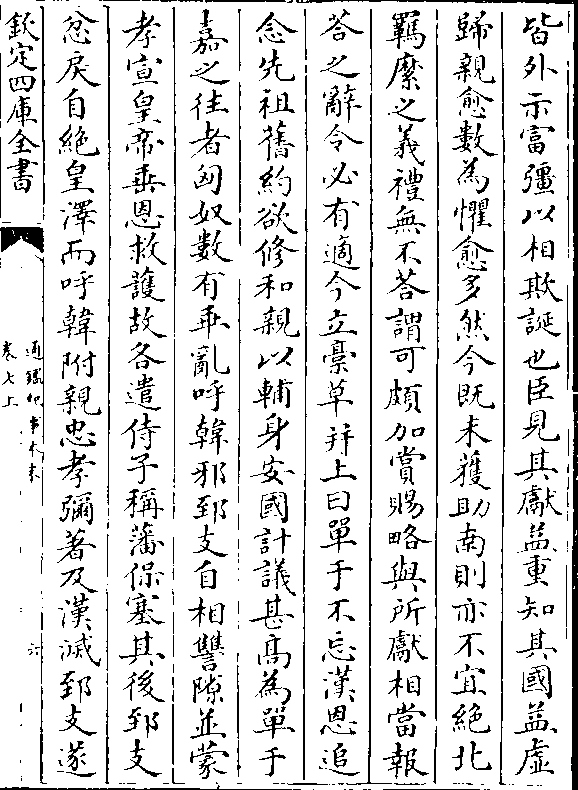 皆外示富彊以相欺誕也臣見其獻益重知其國益虛
歸親愈數為懼愈多然今既未獲助南則亦不宜絶北
羈縻之義禮無不答謂可頗加賞賜略與所獻相當報
荅之辭令必有適今立稾草并上曰單于不忘漢恩追
念先祖舊約欲修和親以輔身安國計議甚高為單于
嘉之往者匈奴數有乖亂呼韓邪郅支自相讐隙並蒙
孝宣皇帝垂恩救護故各遣侍子稱藩保塞其後郅支
忿戾自絶皇澤而呼韓附親忠孝彌著及漢滅郅支遂
欽定四庫全書
通鑑紀事本末
卷七上
六